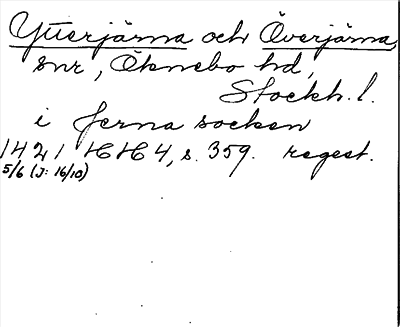 Ytterjärna och Överjärna
snr, Öknebo hd,
Stockh. l.
i Jerna socken
1421 HH 4, s. 359. regest.
5/6 (J: 16/10)